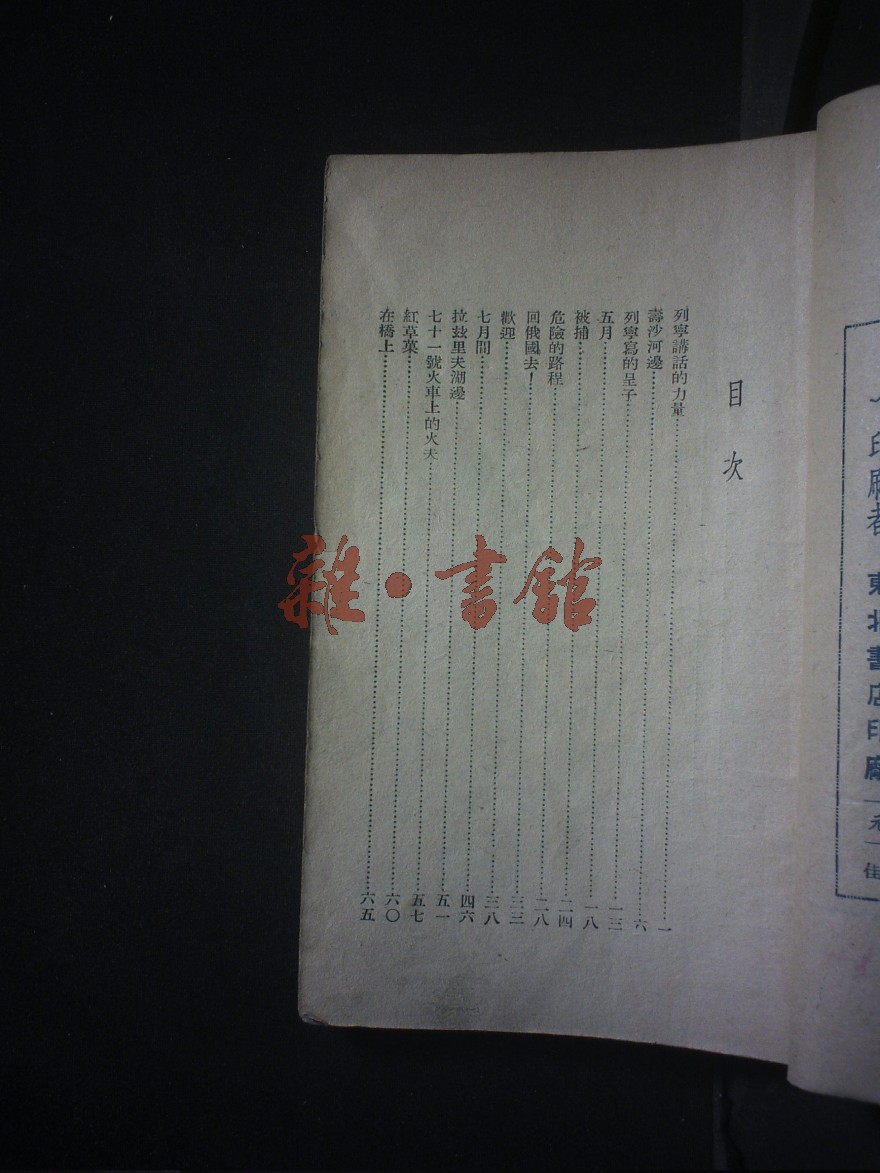 目次
列寧講話的力量……一
壽沙河邊……六
列寧寫的呈子……一三
五月……一八
被捕……二四
危險的路程……二八
回俄國去！……三三
歡迎……三八
七月間……四六
拉玆里夫湖邊……五一
七十一號火車上的火夫……五七
紅草菓……六〇
在橋上……六五
東北書店印廠
雜·書館